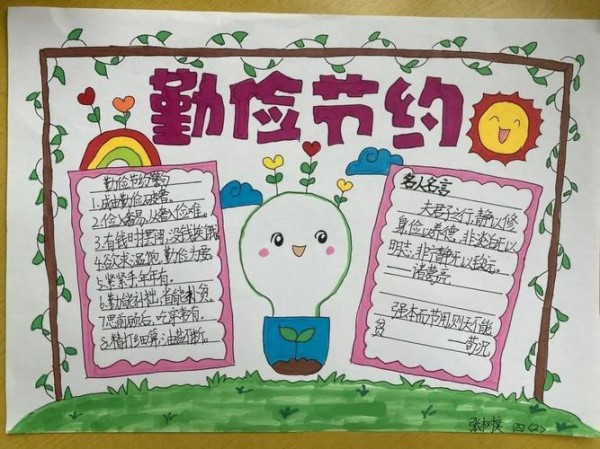 勤俭节约
勤俭节约警句
1.成由勤俭败奢。
2.俭入奢易,从奢入俭难。
3.有钱时摆阔,没钱挨饿
4.欲求温饱,勤俭为要
5.紧紧手,年年有。
6.勤能补拙,省能补贫。
7.思前顾后,吃穿常有。
8.精打细算,油盐不断。
名人名言
夫君子之行,静以修
身,俭以养德,非淡泊无以
明志,非宁静无以致远。
——诸葛亮
强本而节用,则天不能
贫
——荀况
四〈2〉